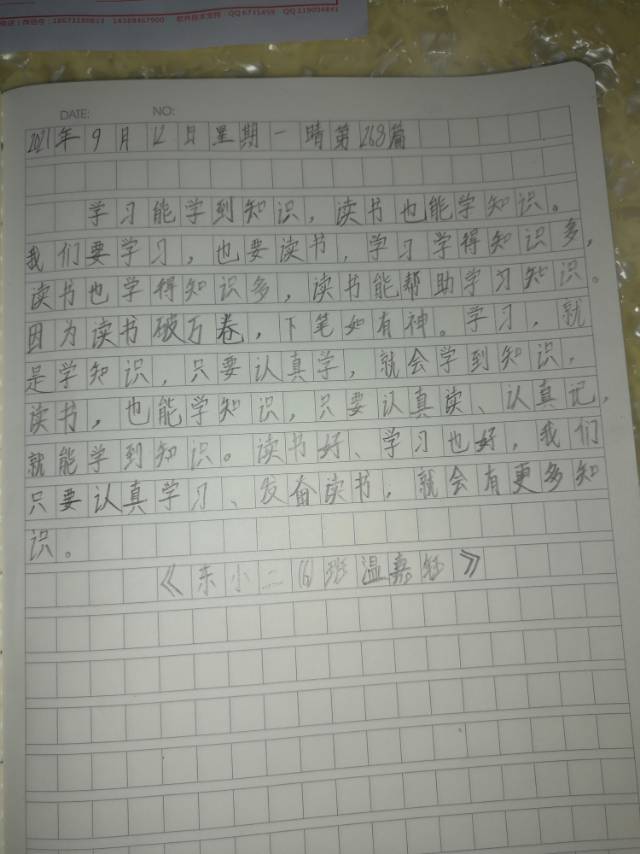 微信:18673180813 14789467900 软件技术支持:QQ6731459 QQ119034841
DATE: NO:
2021年9月12日星期一晴第268篇
学习能学到知识，读书也能学知识。
我们要学习，也要读书，学习学得知识多，
读书也学得知识多，读书能帮助学习知识。
因为读书破万卷，下笔如有神。学习，就
是学知识，只要认真学，就会学到知识，
读书，也能学知识，只要认真读、认真记，
就能学到知识。读书好、学习也好，我们
只要认真学习、发奋读书，就会有更多知
识。
《东小二(6)班温嘉》